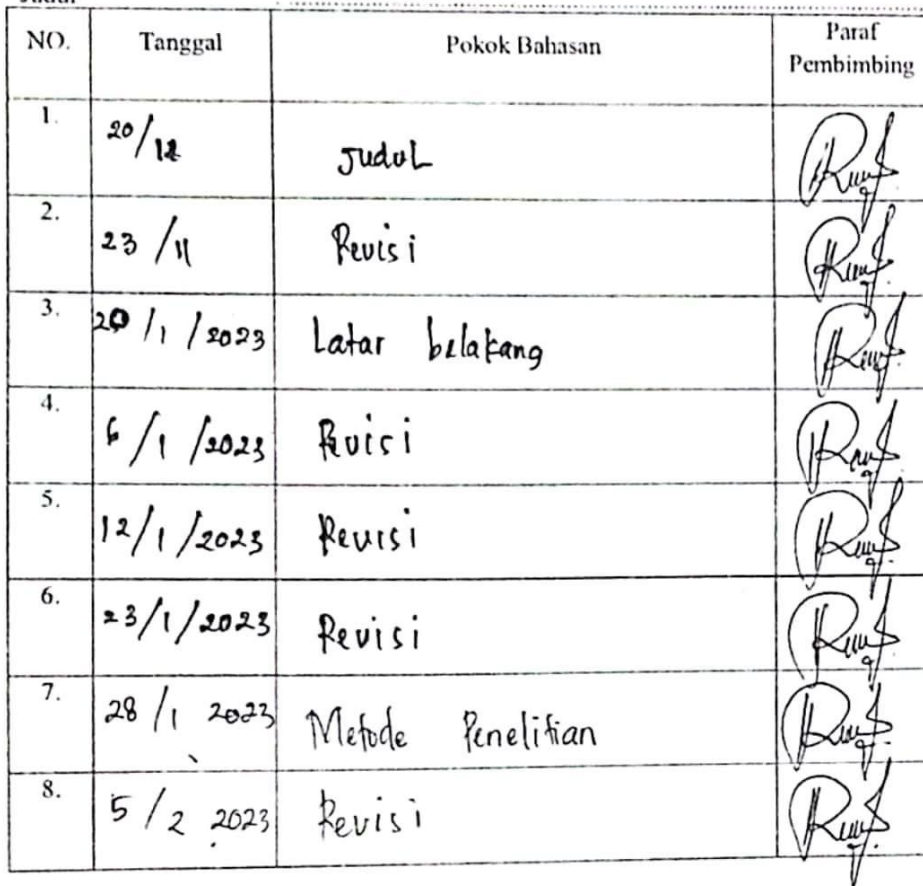 NO. Tanggal Pokok Bahasan Paraf
Pembimbing
1. 20/12 Judul
2. 23/11 Revisi
3. 20/1/2023 Latar belakang
4. 6/1/2023 Revisi
5. 12/1/2023 Revisi
6. 23/1/2023 Revisi
7. 28/1 2023 Metode Penelitian
8. 5/2 2023 Revisi